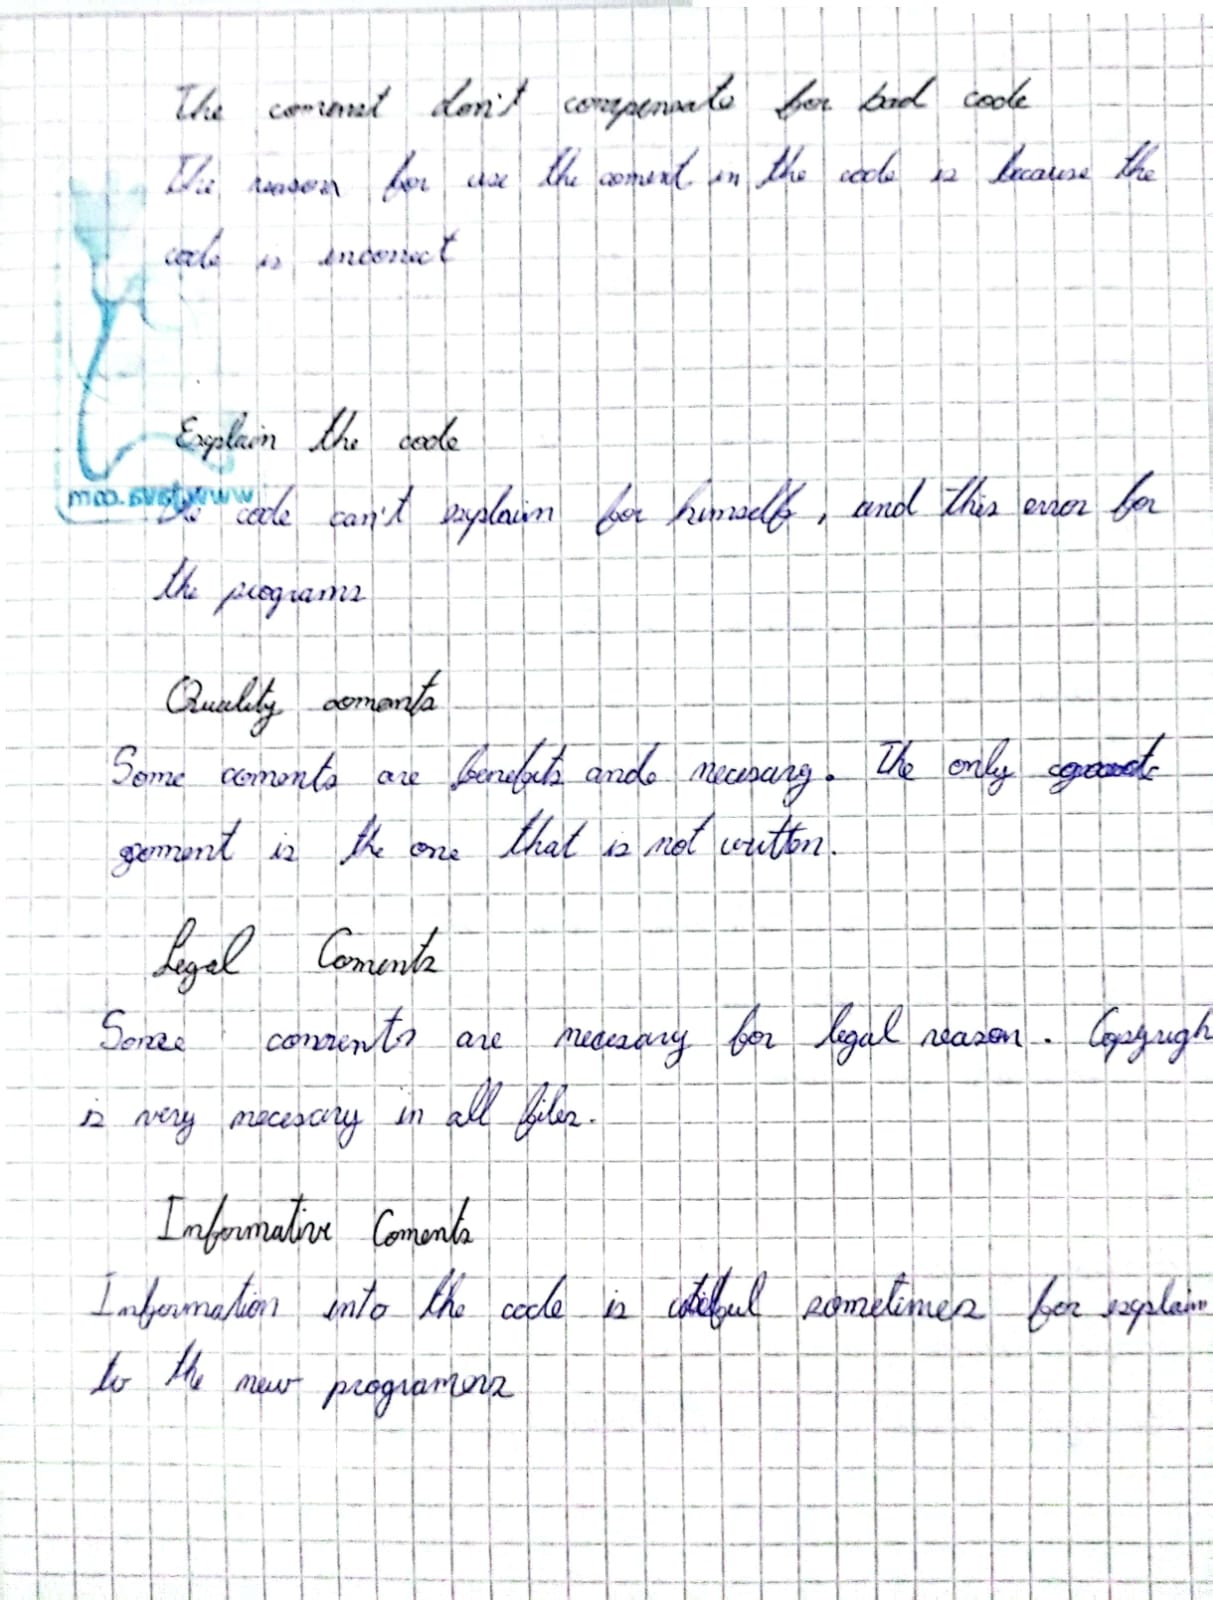 The coment don't compensate for bad code
The reason for use the coment in the code is because the
code is inconrect
Explain the code
www.tava.com
The code can't explain for himself, and this error for
the programs
Quality coments
Some coments are benefits ande necesary. The only
goment is the one that is not written.
Legal Coments
Some coments are necesary for legal reason. Copyrigh
is very necesary in all files.
Informative Coments
Information into the code is sometimes for explain
to the new programers